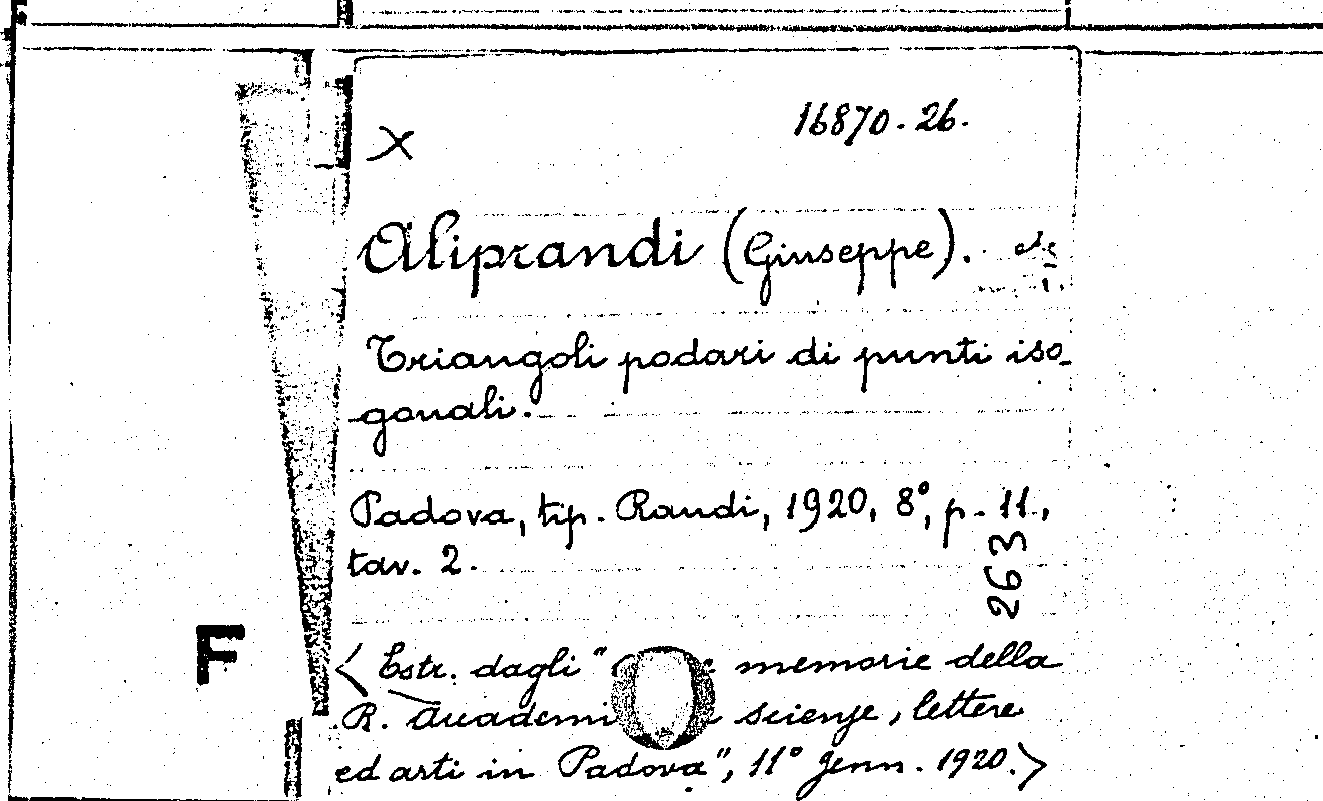 16870-26.
X
Aliprandi (Giuseppe).
Triangoli podari di punti iso-
gonali.
Padova, tip. Randi, 1920, 8°, p. 11,
tav. 2.
263
F
< Estr. dagli " memorie della
R. Accademi scienze, lettere
ed arti in Padova", 11° Genn. 1920.>